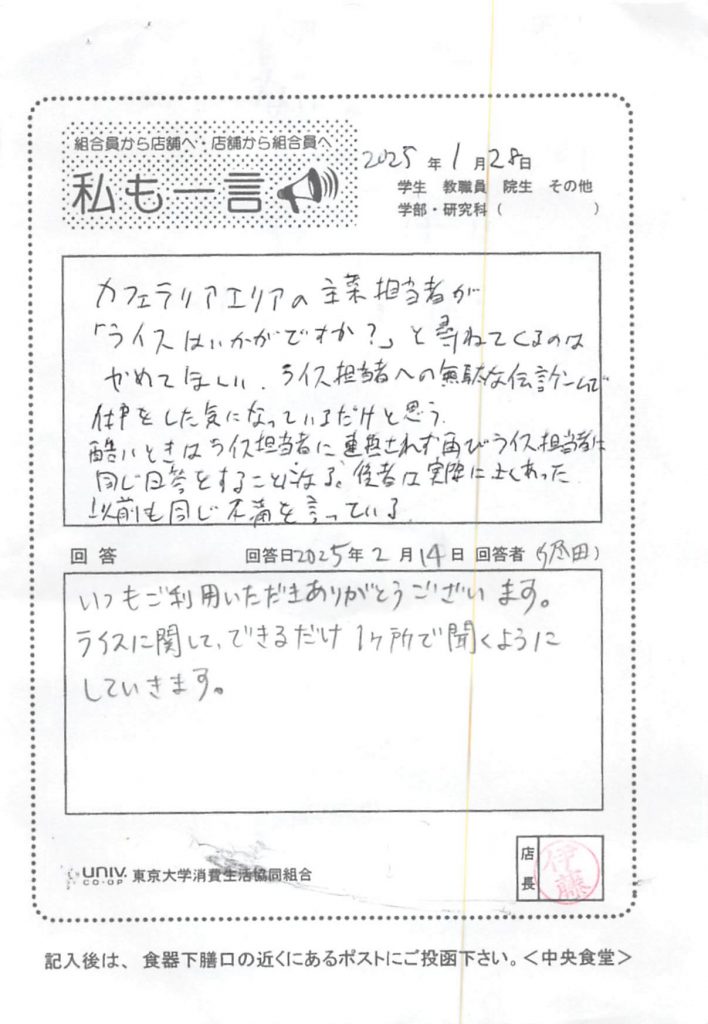 組合員から店舗へ・店舗から組合員へ
私も一言
2025年1月28日
学生 教職員 院生 その他
学部・研究科( )
カフェテリアエリアの主菜担当者が
「ライスはいかがですか?」と尋ねてくるのは
やめてほしい。ライス担当者への無駄な伝言ゲームで
仕事をした気になっているだけと思う。
酷いときはライス担当者に連携されず再びライス担当者に
同じ回答をすることになる。後者は実際によくあった。
以前も同じ不満を言っている。
回答 回答日2025年2月14日 回答者( 田)
いつもご利用いただきありがとうございます。
ライスに関して、できるだけ1ヶ所で聞くように
していきます。
UNIV. CO-OP 東京大学消費生活協同組合
店長 伊藤
記入後は、食器下膳口の近くにあるポストにご投函下さい。<中央食堂>